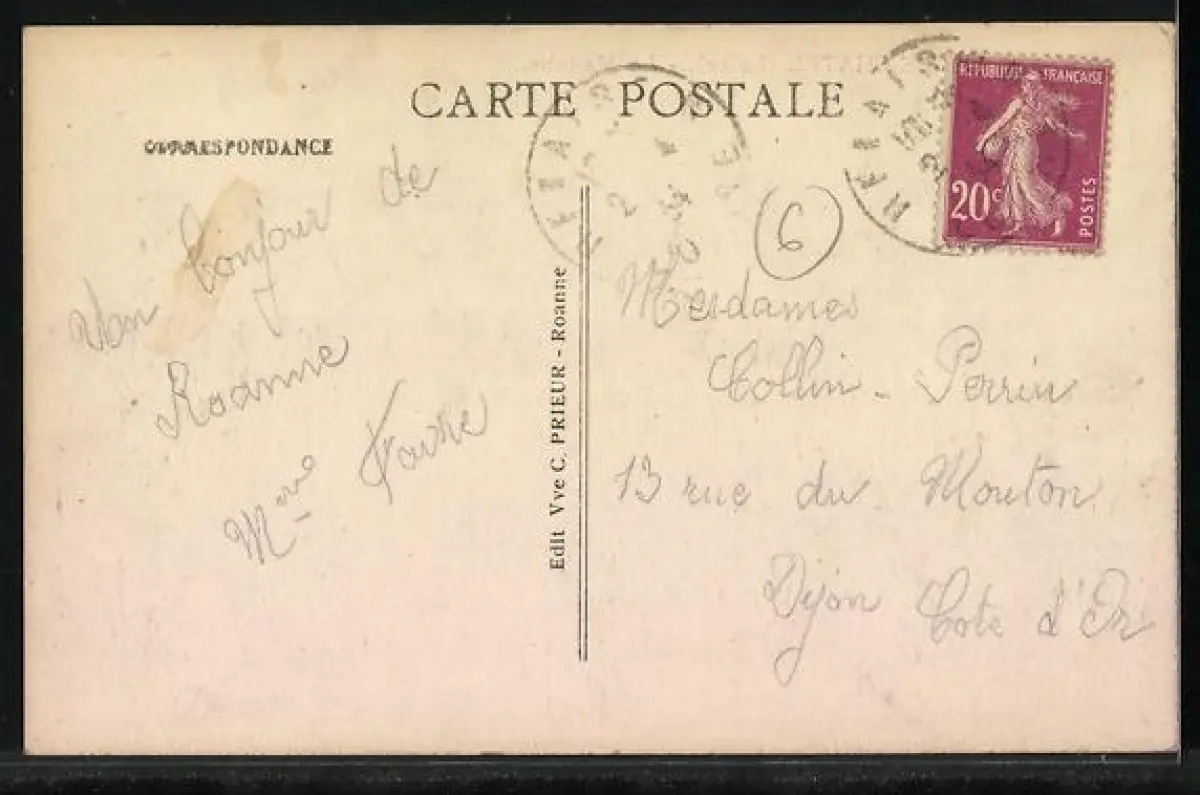 CARTE POSTALE
CORRESPONDANCE
RÉPUBLIQUE FRANÇAISE
20c
POSTES
6
bonjour de
Roanne
Mme Favre
Edit Vve C. PRIEUR - Roanne
Mesdames
Collin - Perrin
13 rue du Mouton
Dijon Cote d'Or